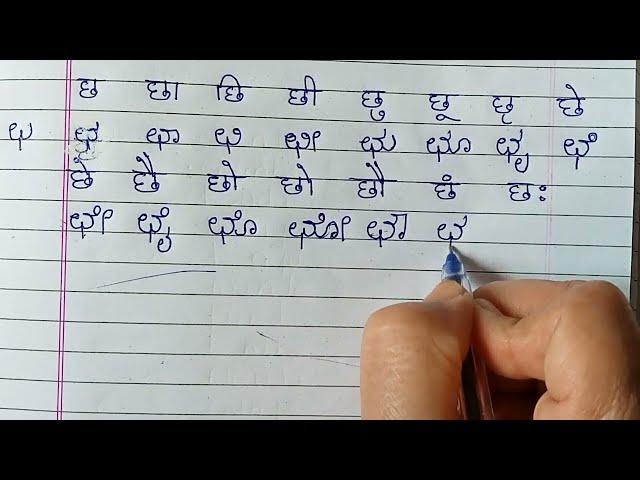 छ छा छि छी छु छू छृ छे
ಛ ಛ ಛಾ ಛಿ ಛೀ ಛು ಛೂ ಛೃ ಛೆ
छे छै छो छो छौ छं छः
ಛೇ ಛೈ ಛೊ ಛೋ ಛೌ ಛ